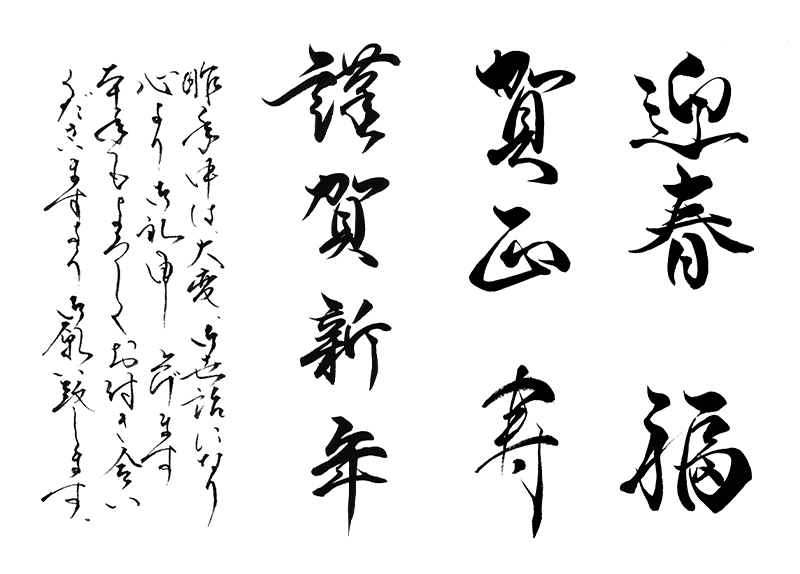 迎春
福
賀正
寿
謹賀新年
昨年中は大変、御世話になり
心より御礼申し上げます
本年もよろしくお付き合い
くださいますよう御願い致します。